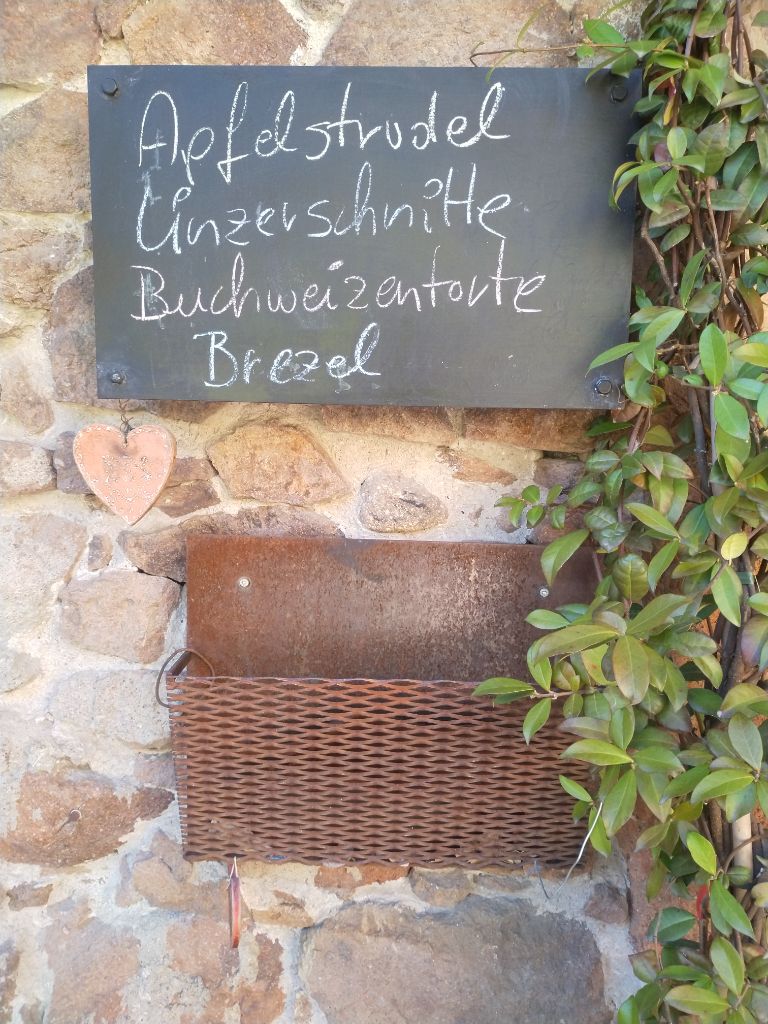 Apfelstrudel
Linzerschnitte
Buchweizentorte
Brezel